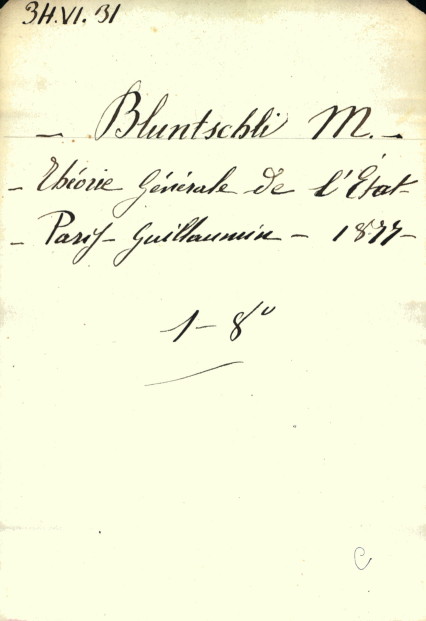 34.VI.31
- Bluntschli M. -
- Théorie Générale de l'État -
- Paris - Guillaumin - 1877 -
1 - 8º
C